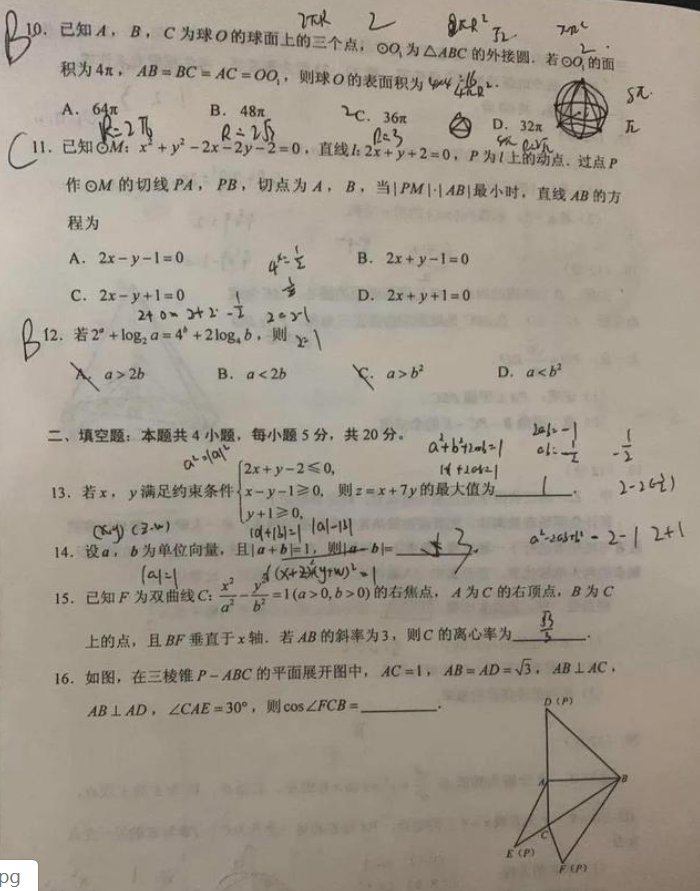 2πR 2
B 10. 已知 A，B，C 为球 O 的球面上的三个点，⊙O₁ 为 △ABC 的外接圆. 若 ⊙O₁ 的面
积为 4π，AB = BC = AC = OO₁，则球 O 的表面积为
A. 64π B. 48π C. 36π D. 32π
R=2√2 R=3
C 11. 已知 ⊙M：x² + y² − 2x − 2y − 2 = 0，直线 l：2x + y + 2 = 0，P 为 l 上的动点. 过点 P
作 ⊙M 的切线 PA，PB，切点为 A，B，当 |PM|·|AB| 最小时，直线 AB 的方
程为
A. 2x − y − 1 = 0 B. 2x + y − 1 = 0
C. 2x − y + 1 = 0 D. 2x + y + 1 = 0
B 12. 若 2ᵃ + log₂ a = 4ᵇ + 2log₄ b，则
A. a > 2b B. a < 2b C. a > b² D. a < b²
二、填空题：本题共 4 小题，每小题 5 分，共 20 分。
a²+b²+2ab=1 2ab=-1
ab=-1/2 -1/2
13. 若 x，y 满足约束条件 { 2x + y − 2 ≤ 0, x − y − 1 ≥ 0, y + 1 ≥ 0, 则 z = x + 7y 的最大值为 1 .
(x,y) (z,w) |a+b|=1 |a-b|
14. 设 a，b 为单位向量，且 |a + b| = 1，则 |a − b| = 3 .
a²-2ab+b² = 2-1 2+1
|a|=1 (x+z)²(y+w)²=1
15. 已知 F 为双曲线 C：x²/a² − y²/b² = 1 (a > 0, b > 0) 的右焦点，A 为 C 的右顶点，B 为 C
上的点，且 BF 垂直于 x 轴. 若 AB 的斜率为 3，则 C 的离心率为 √3/3 .
16. 如图，在三棱锥 P − ABC 的平面展开图中，AC = 1，AB = AD = √3，AB ⊥ AC，
AB ⊥ AD，∠CAE = 30°，则 cos∠FCB = ________.
D (P)
A B
C
E (P)
F (P)
pg